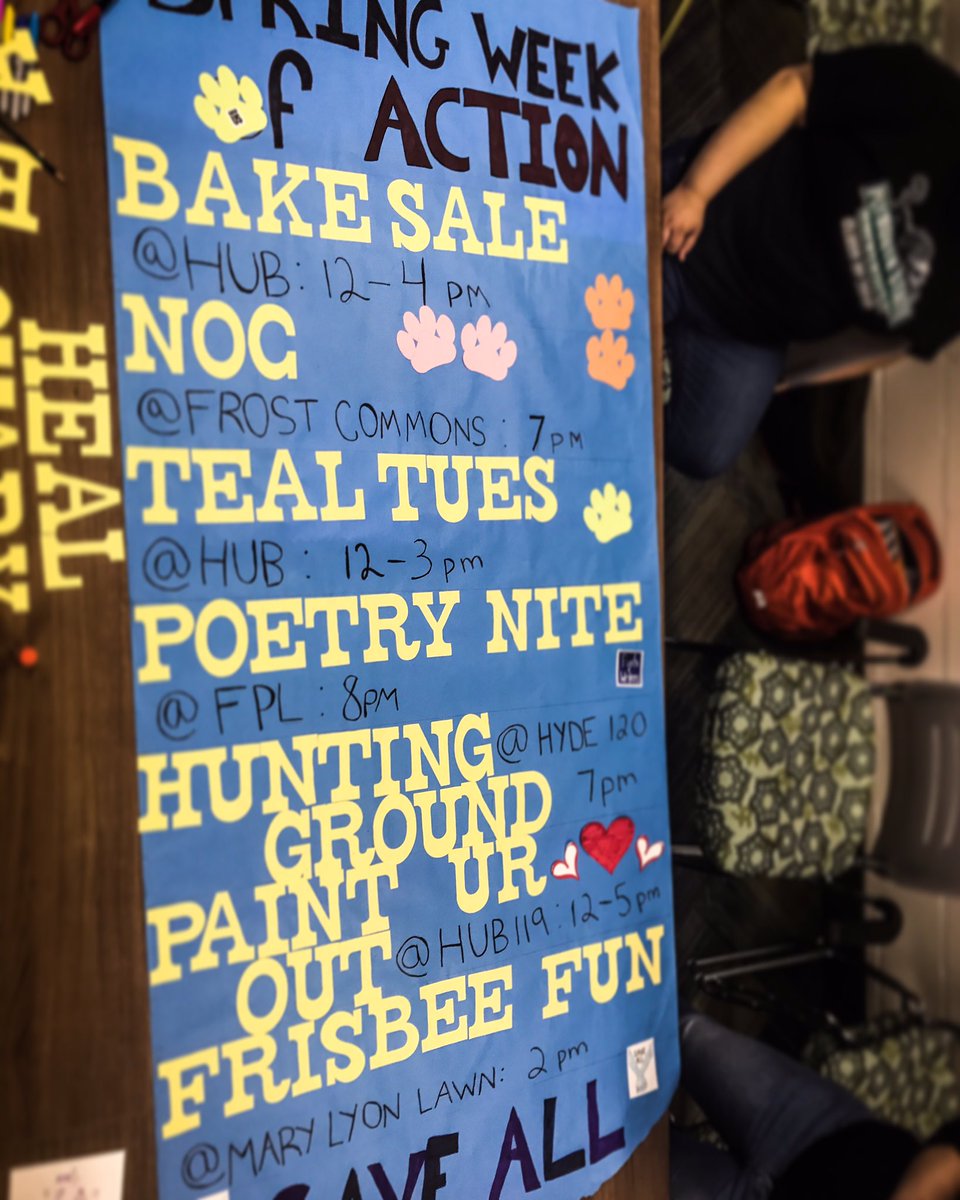 SPRING WEEK
of ACTION
BAKE SALE
@HUB: 12-4 pm
NOC
@FROST COMMONS: 7pm
TEAL TUES
@HUB: 12-3pm
POETRY NITE
@FPL: 8pm
HUNTING @HYDE 120
GROUND 7pm
PAINT UR
OUT @HUB119: 12-5pm
FRISBEE FUN
@MARY LYON LAWN: 2pm
SAVE ALL
HEAL